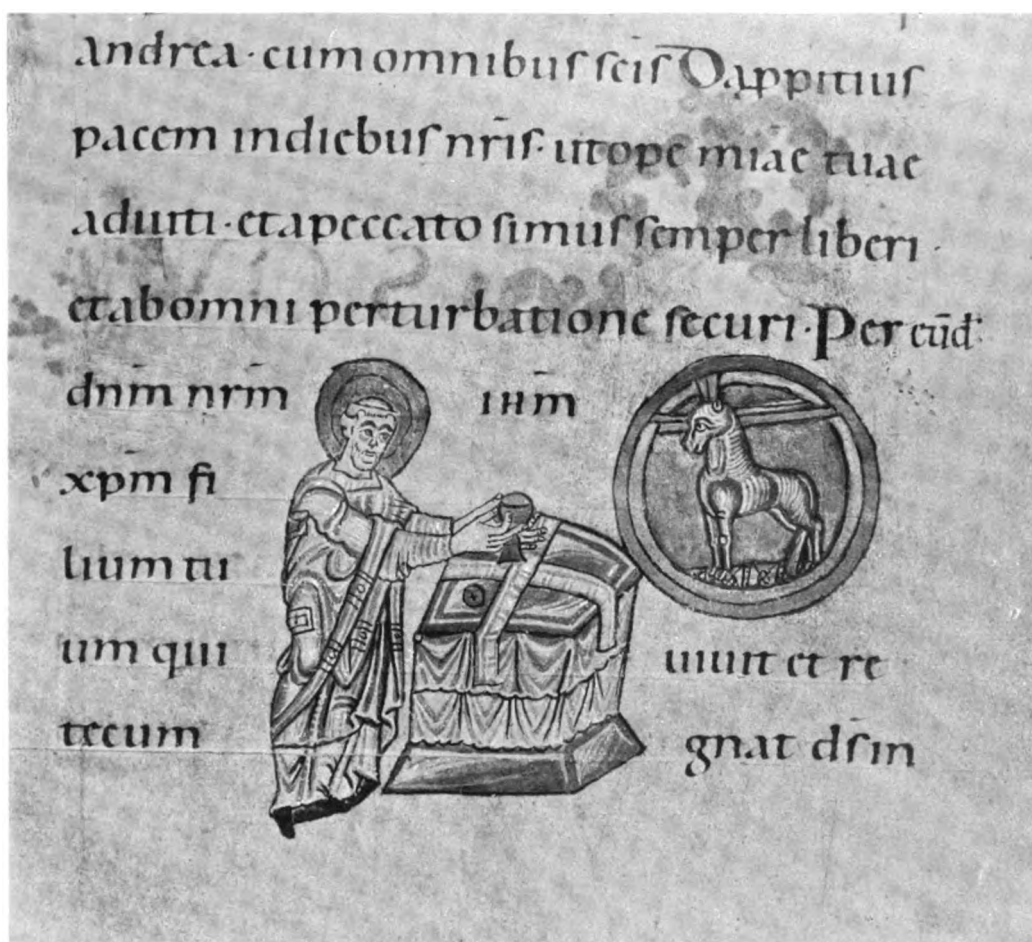 andrea · cum omnibus scis Da ppitius
pacem in diebus nr̄is · ut ope mīae tuae
adiuti · et a peccato simus semper liberi ·
et ab omni perturbatione securi · Per eūd
dnm̄ nrm̄ ihm̄
xpm̄ fi
lium tu
um qui uiuit et re
tecum gnat ds̄ in